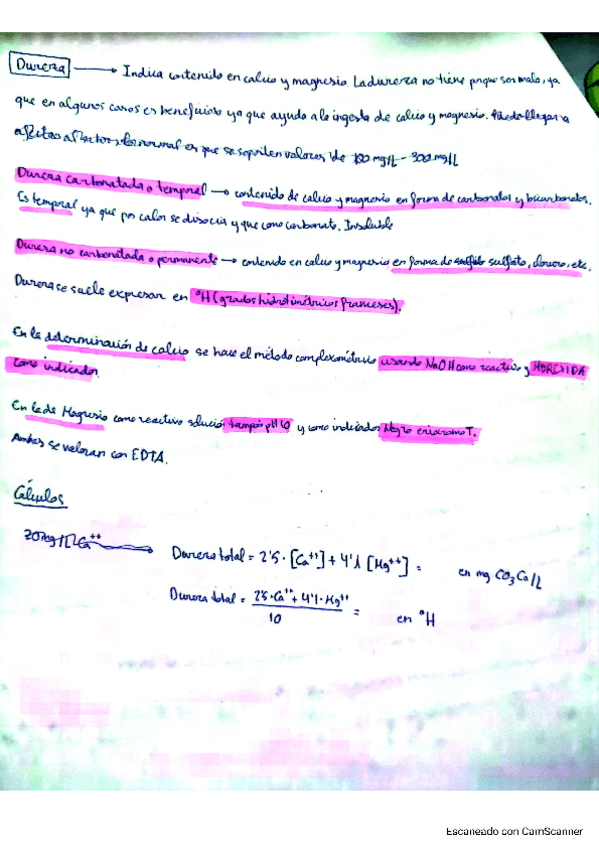 Dureza → Indica contenido en calcio y magnesio. La dureza no tiene porque ser malo, ya
que en algunos casos es beneficioso ya que ayuda a la ingesta de calcio y magnesio. Puede llegar a
lo normal es que se soporten valores de 100 mg/L - 300 mg/L
Dureza carbonatada o temporal → contenido de calcio y magnesio en forma de carbonatos y bicarbonatos.
Es temporal ya que por calor se disocia y que como carbonato. Insoluble
Dureza no carbonatada o permanente → contenido en calcio y magnesio en forma de sulfato, cloruro, etc.
Dureza se suele expresar en °H (grados hidrotimétricos franceses).
En la determinación de calcio se hace el método complexométrico usando NaOH como reactivo y MUREXIDA
como indicador.
En la de Magnesio como reactivo solución tampón pH 10 y como indicador Negro eriocromo T.
Ambos se valoran con EDTA.
Cálculos
20mg/L Ca⁺⁺
Dureza total = 2'5 · [Ca⁺⁺] + 4'1 [Mg⁺⁺] = en mg CO₃Ca/L
Dureza total = 2'5·Ca⁺⁺ + 4'1·Mg⁺⁺ / 10 = en °H
Escaneado con CamScanner